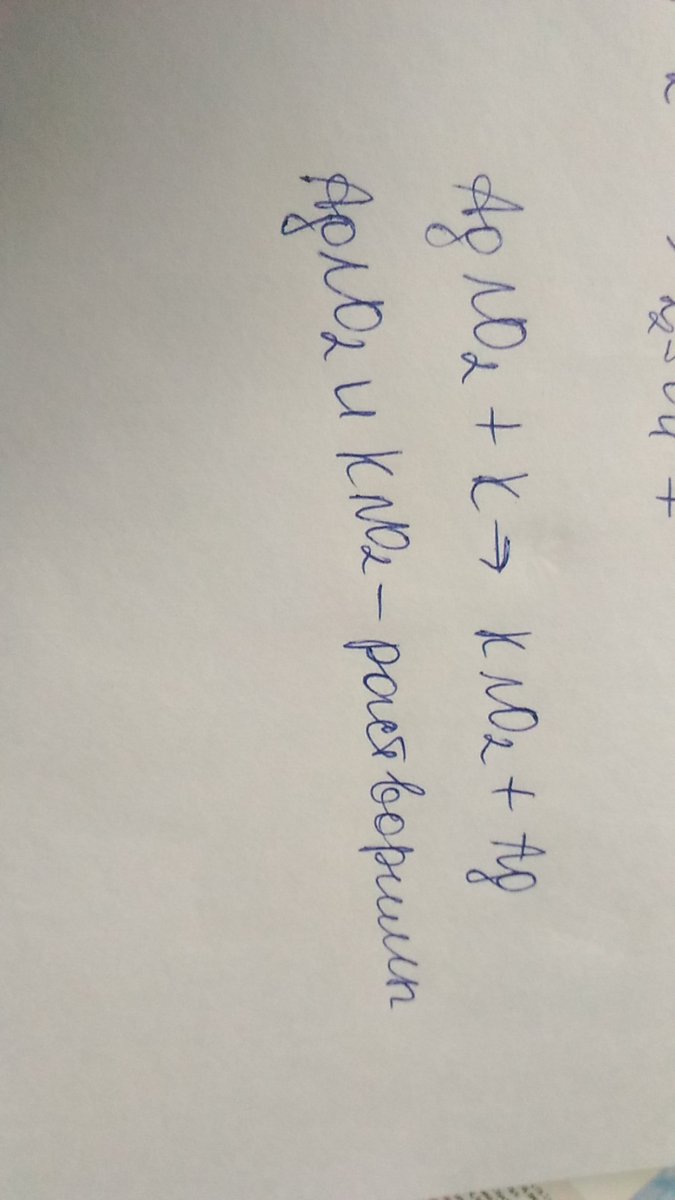 AgNO2 + K → KNO2 + Ag
AgNO2 и KNO2 - растворимы